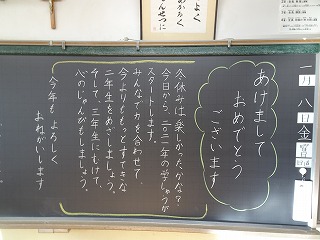 一月八日金
あけまして
おめでとう
ございます
冬休みは楽しかったかな?
今日から二〇二一年の学しゅうが
スタートします。
みんなで力を合わせて、
今よりももっとすてきな
二年生をめざしましょう。
そして、三年生にむけて、
心のじゅんびもしましょう。
今年もよろしく
おねがいします